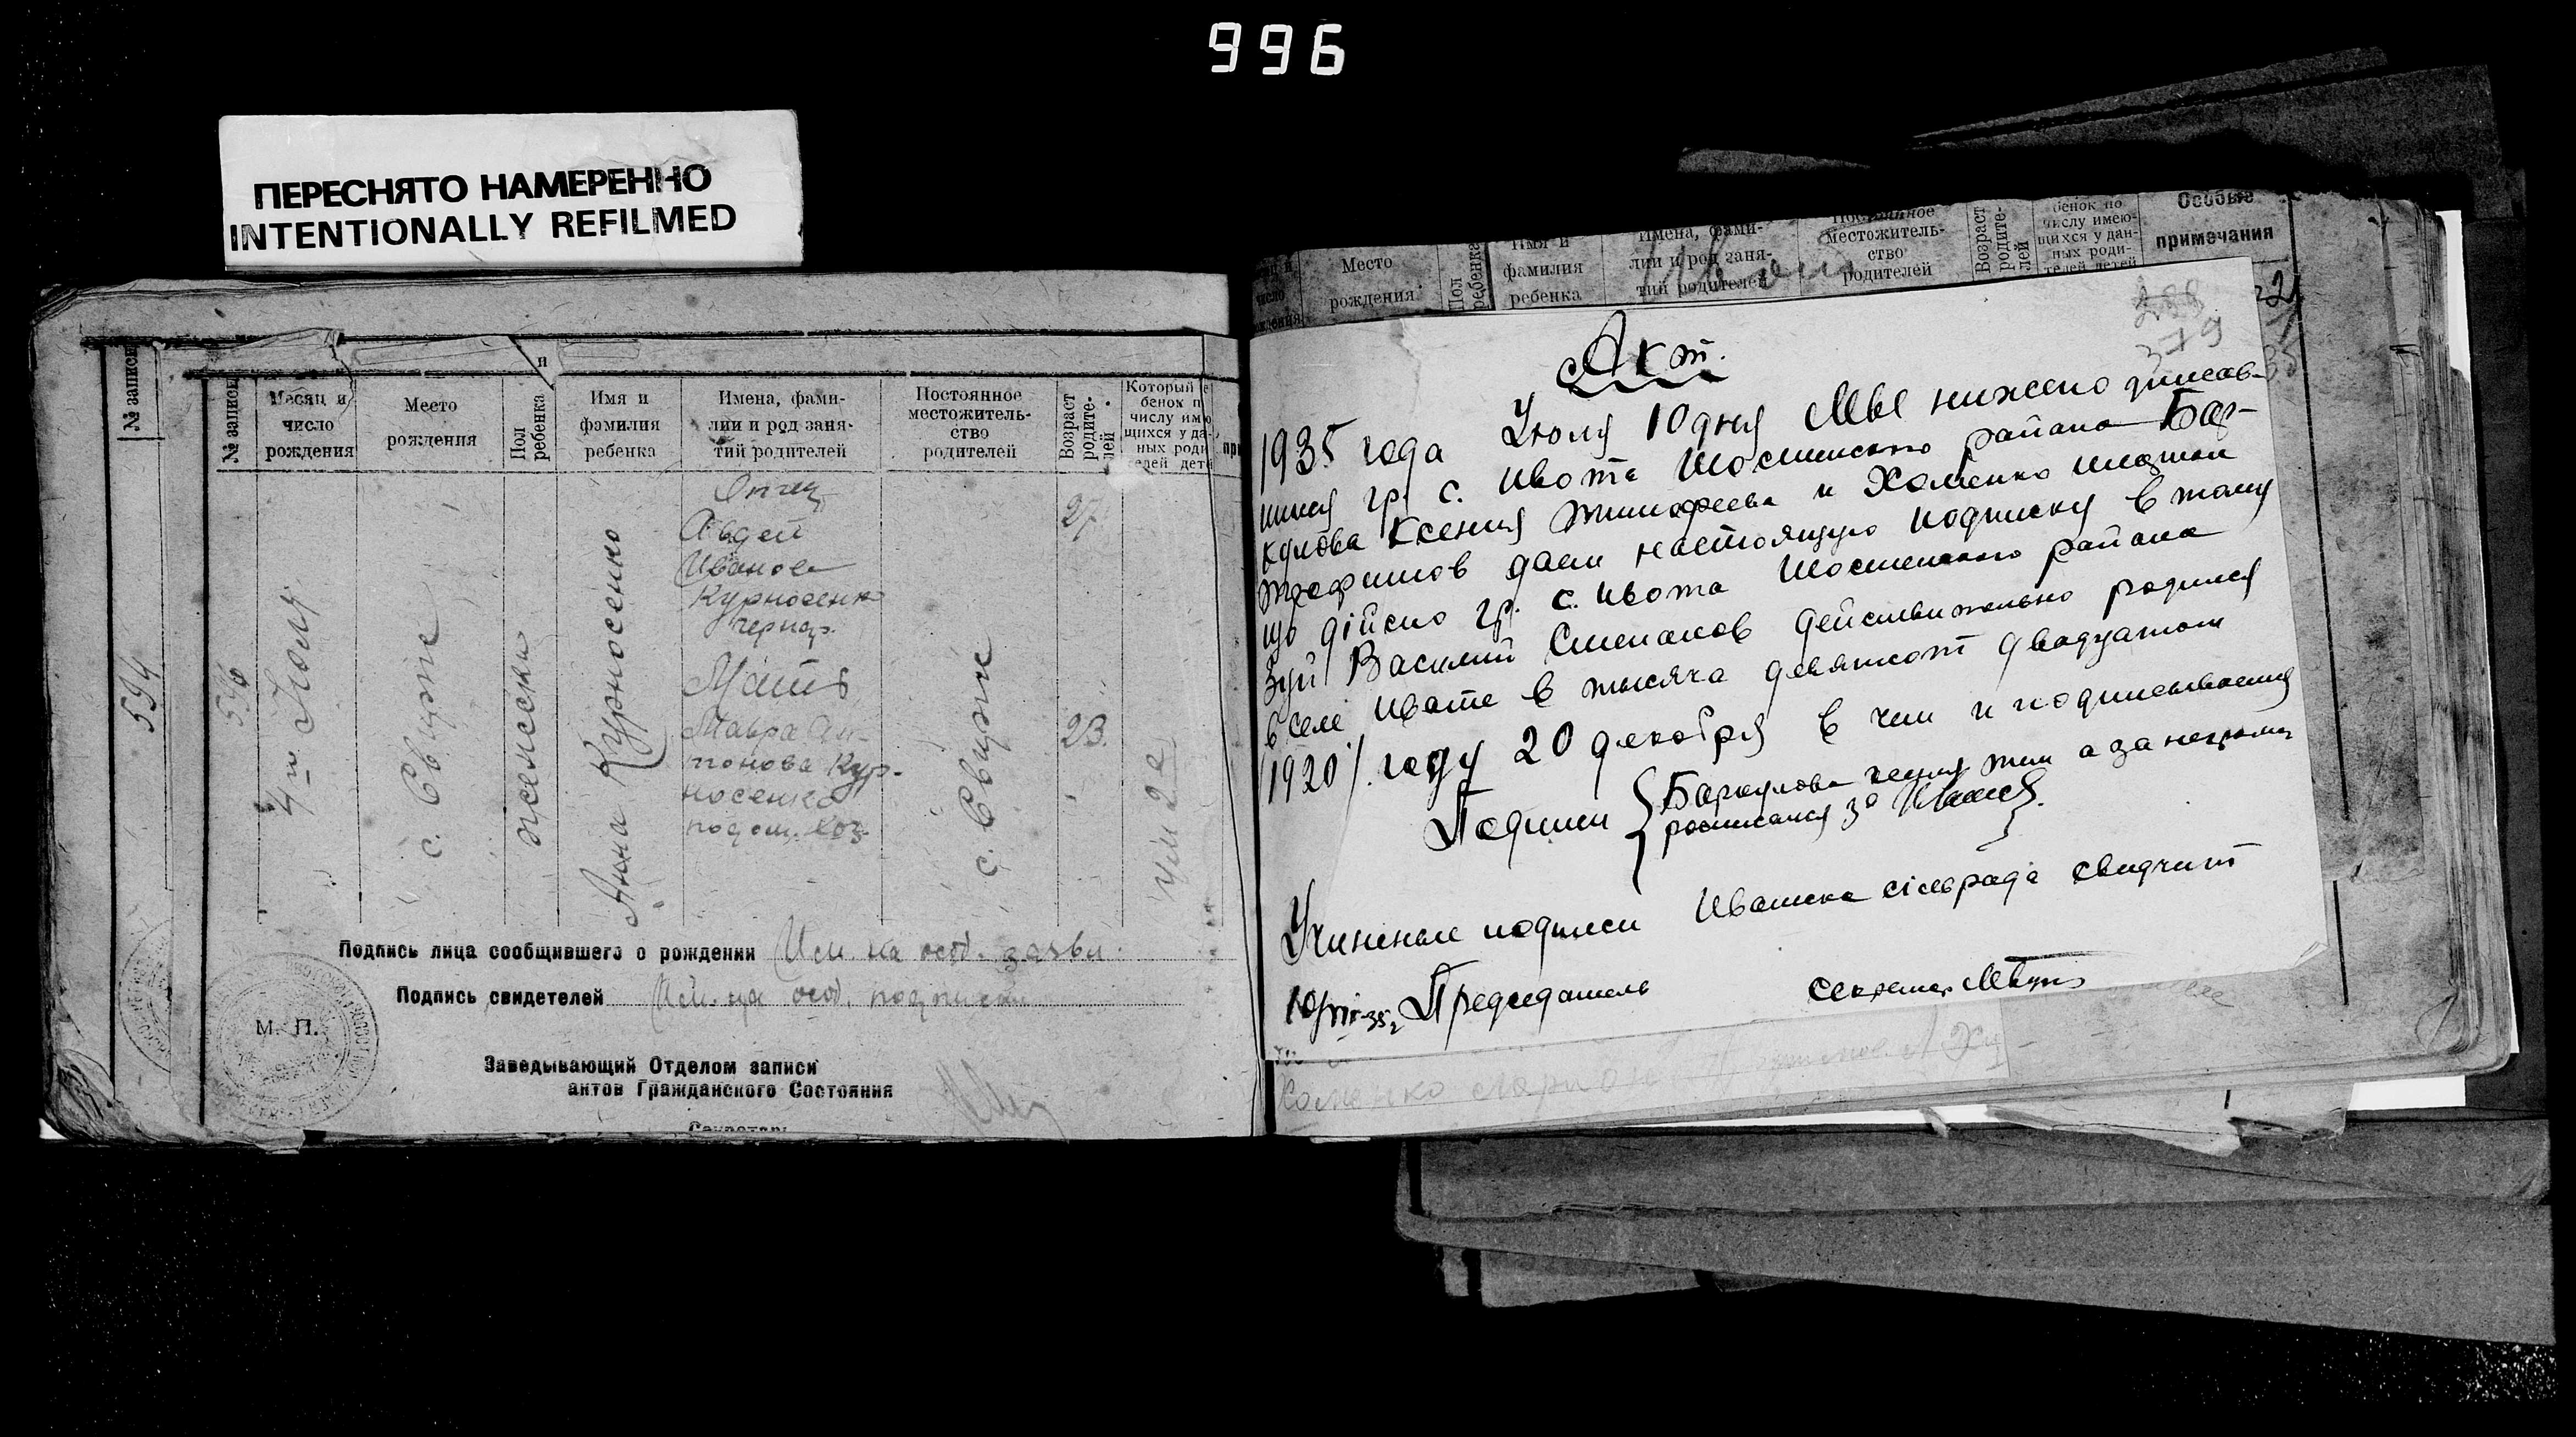 996
ПЕРЕСНЯТО НАМЕРЕННО
INTENTIONALLY REFILMED
№ записи
594
и
№ записи
Месяц и число рождения
Место рождения
Пол ребенка
Имя и фамилия ребенка
Имена, фамилии и род занятий родителей
Постоянное местожительство родителей
Возраст родителей
Который
бенок п
числу имею
щихся у да-
ных роди
телей дете
4го Июля
с. Свирже
женский
Анна Курносенко
Отец
Авдей
Иванов
Курносенко
чернор.
Мать
Мавра Ан-
тонова Кур-
носенко
подом. хоз.
с. Свирже
27
23.
Подпись лица сообщившего о рождении Им. на особ. заявл.
Подпись свидетелей Им. на особ. подписки
М. П.
Заведывающий Отделом записи
актов Гражданского Состояния
Секретарь
Место рождения
Пол ребенка
Имя и фамилия ребенка
Имена, фами-
лии и род заня-
тий родителей
Постоянное
местожитель-
ство
родителей
Возраст родителей
бенок по
числу имею-
щихся у дан-
ных роди-
телей детей
Особые
примечания
Акт.
1935 года Июля 10 дня Мы нижеподписав-
шися гр. с. Ивота Шостенского района Бар-
кулова Ксения Тимофеева и Хоменко
Трофимов даем настоящую подписку в тому
що дійсно гр. с. Ивота Шостенского района
Зуй Василий Степанов действительно родился
в селе Ивоте в тысяча девятсот двадцатом
1920/. году 20 декабря в чем и подписываемся
Подписи { Баркулова тим а за неграмот
росписался за
Учиненые подписи Ивотска сільрада свидчит
10/VII-35 г. Председатель секретар
Хоменко